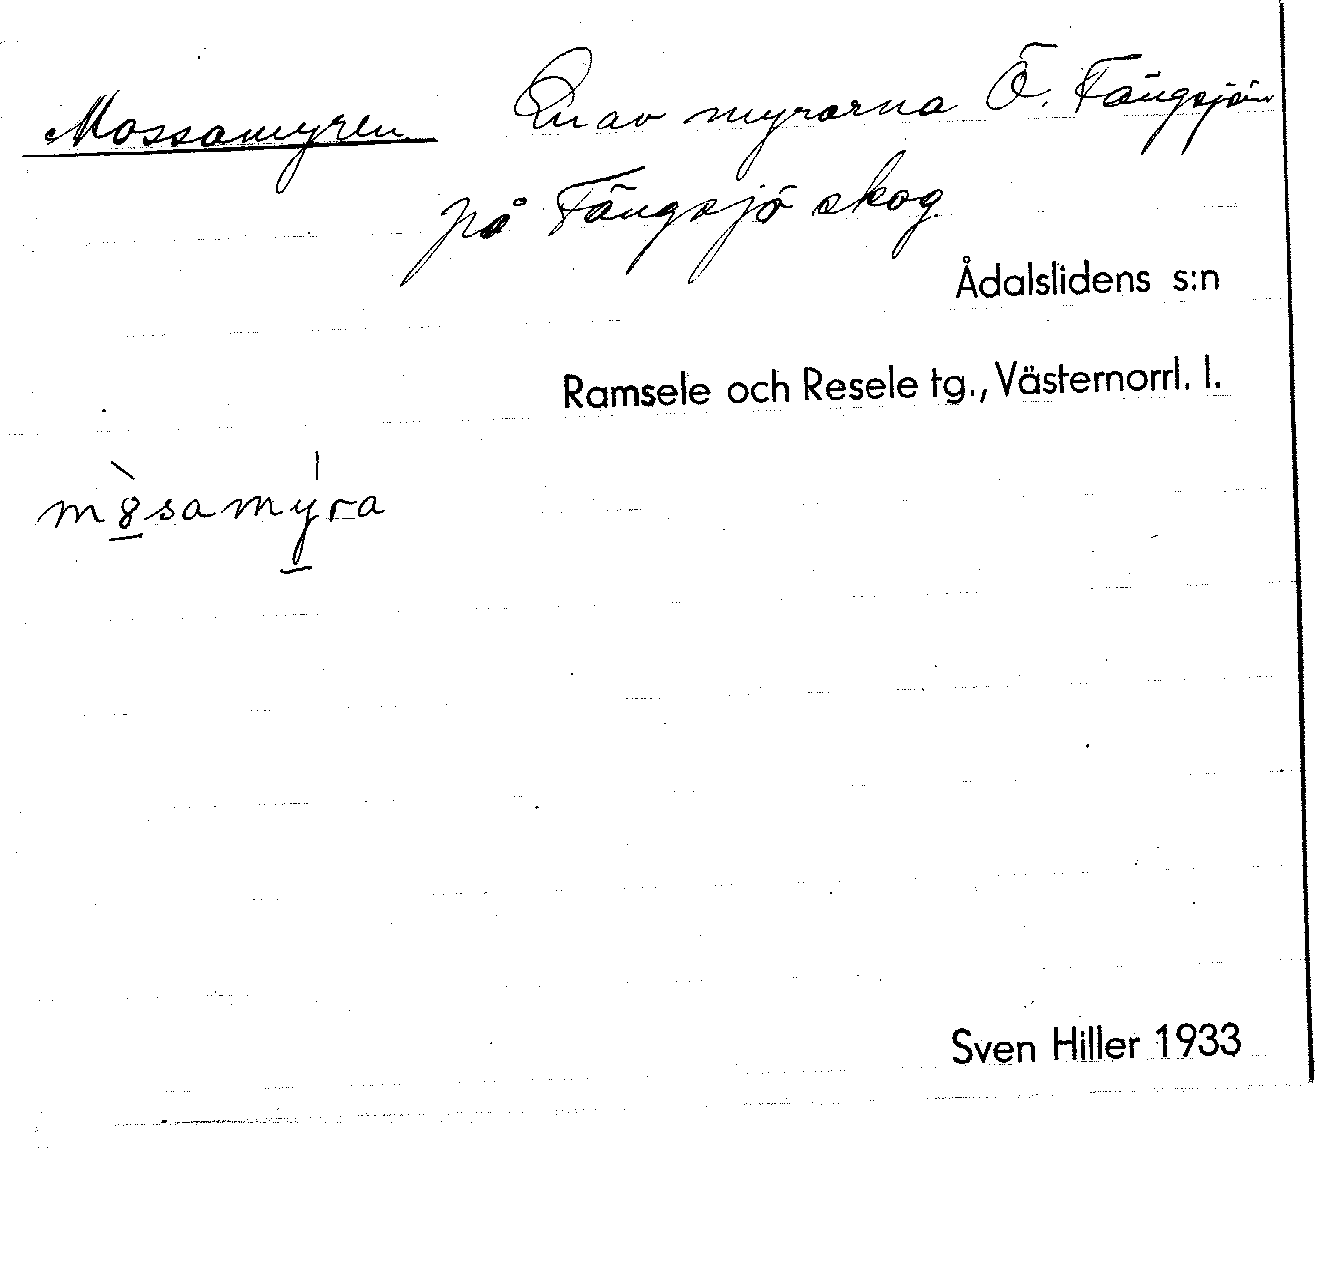 Mossamyren En av myrorna Ö. Tängsjön
på Tängsjö skog
Ådalslidens s:n
Ramsele och Resele tg., Västernorrl. l.
m8samyra
Sven Hiller 1933